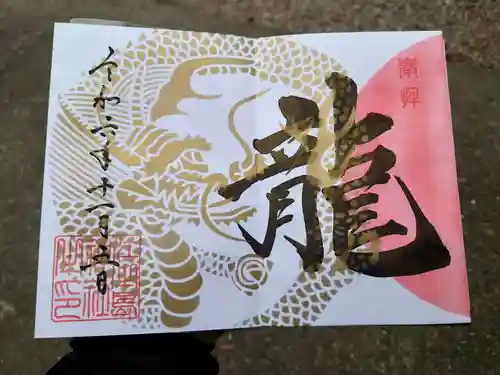 奉拝
龍
令和六年十一月五日